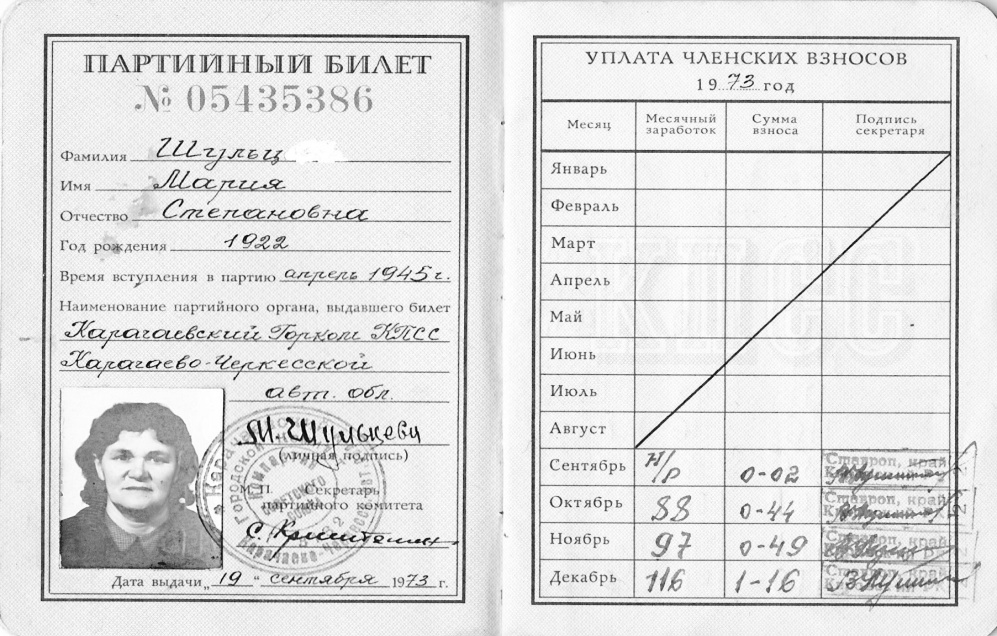 ПАРТИЙНЫЙ БИЛЕТ
№ 05435386
Фамилия Шульц
Имя Мария
Отчество Степановна
Год рождения 1922
Время вступления в партию апрель 1945 г.
Наименование партийного органа, выдавшего билет
Карачаевский Горком КПСС
Карачаево-Черкесской
авт. обл.
М. Шульцева
(личная подпись)
М.П. Секретарь
партийного комитета
Дата выдачи „19" сентября 1973 г.
УПЛАТА ЧЛЕНСКИХ ВЗНОСОВ
1973 год
Месяц Месячный заработок Сумма взноса Подпись секретаря
Январь
Февраль
Март
Апрель
Май
Июнь
Июль
Август
Сентябрь н/р 0-02 Ставроп. край
Октябрь 88 0-44 Ставроп. край
Ноябрь 97 0-49 Ставроп. край
Декабрь 116 1-16
КПСС